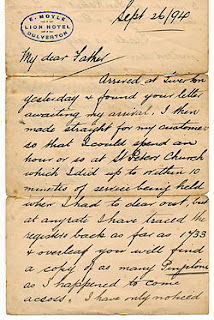 E. MOYLE
LION HOTEL
DULVERTON
Sept 26/94
My dear Father
Arrived at Tiverton
yesterday & found your letter
awaiting my arrival, I then
made straight for my customer
so that I could spend an
hour or so at St Peters Church
which I did up to within 10
minutes of service being held
when I had to clear out, but
at anyrate I have traced the
registers back as far as 1733
& overleaf you will find
a copy of as many
as I happened to come
across. I have only noticed